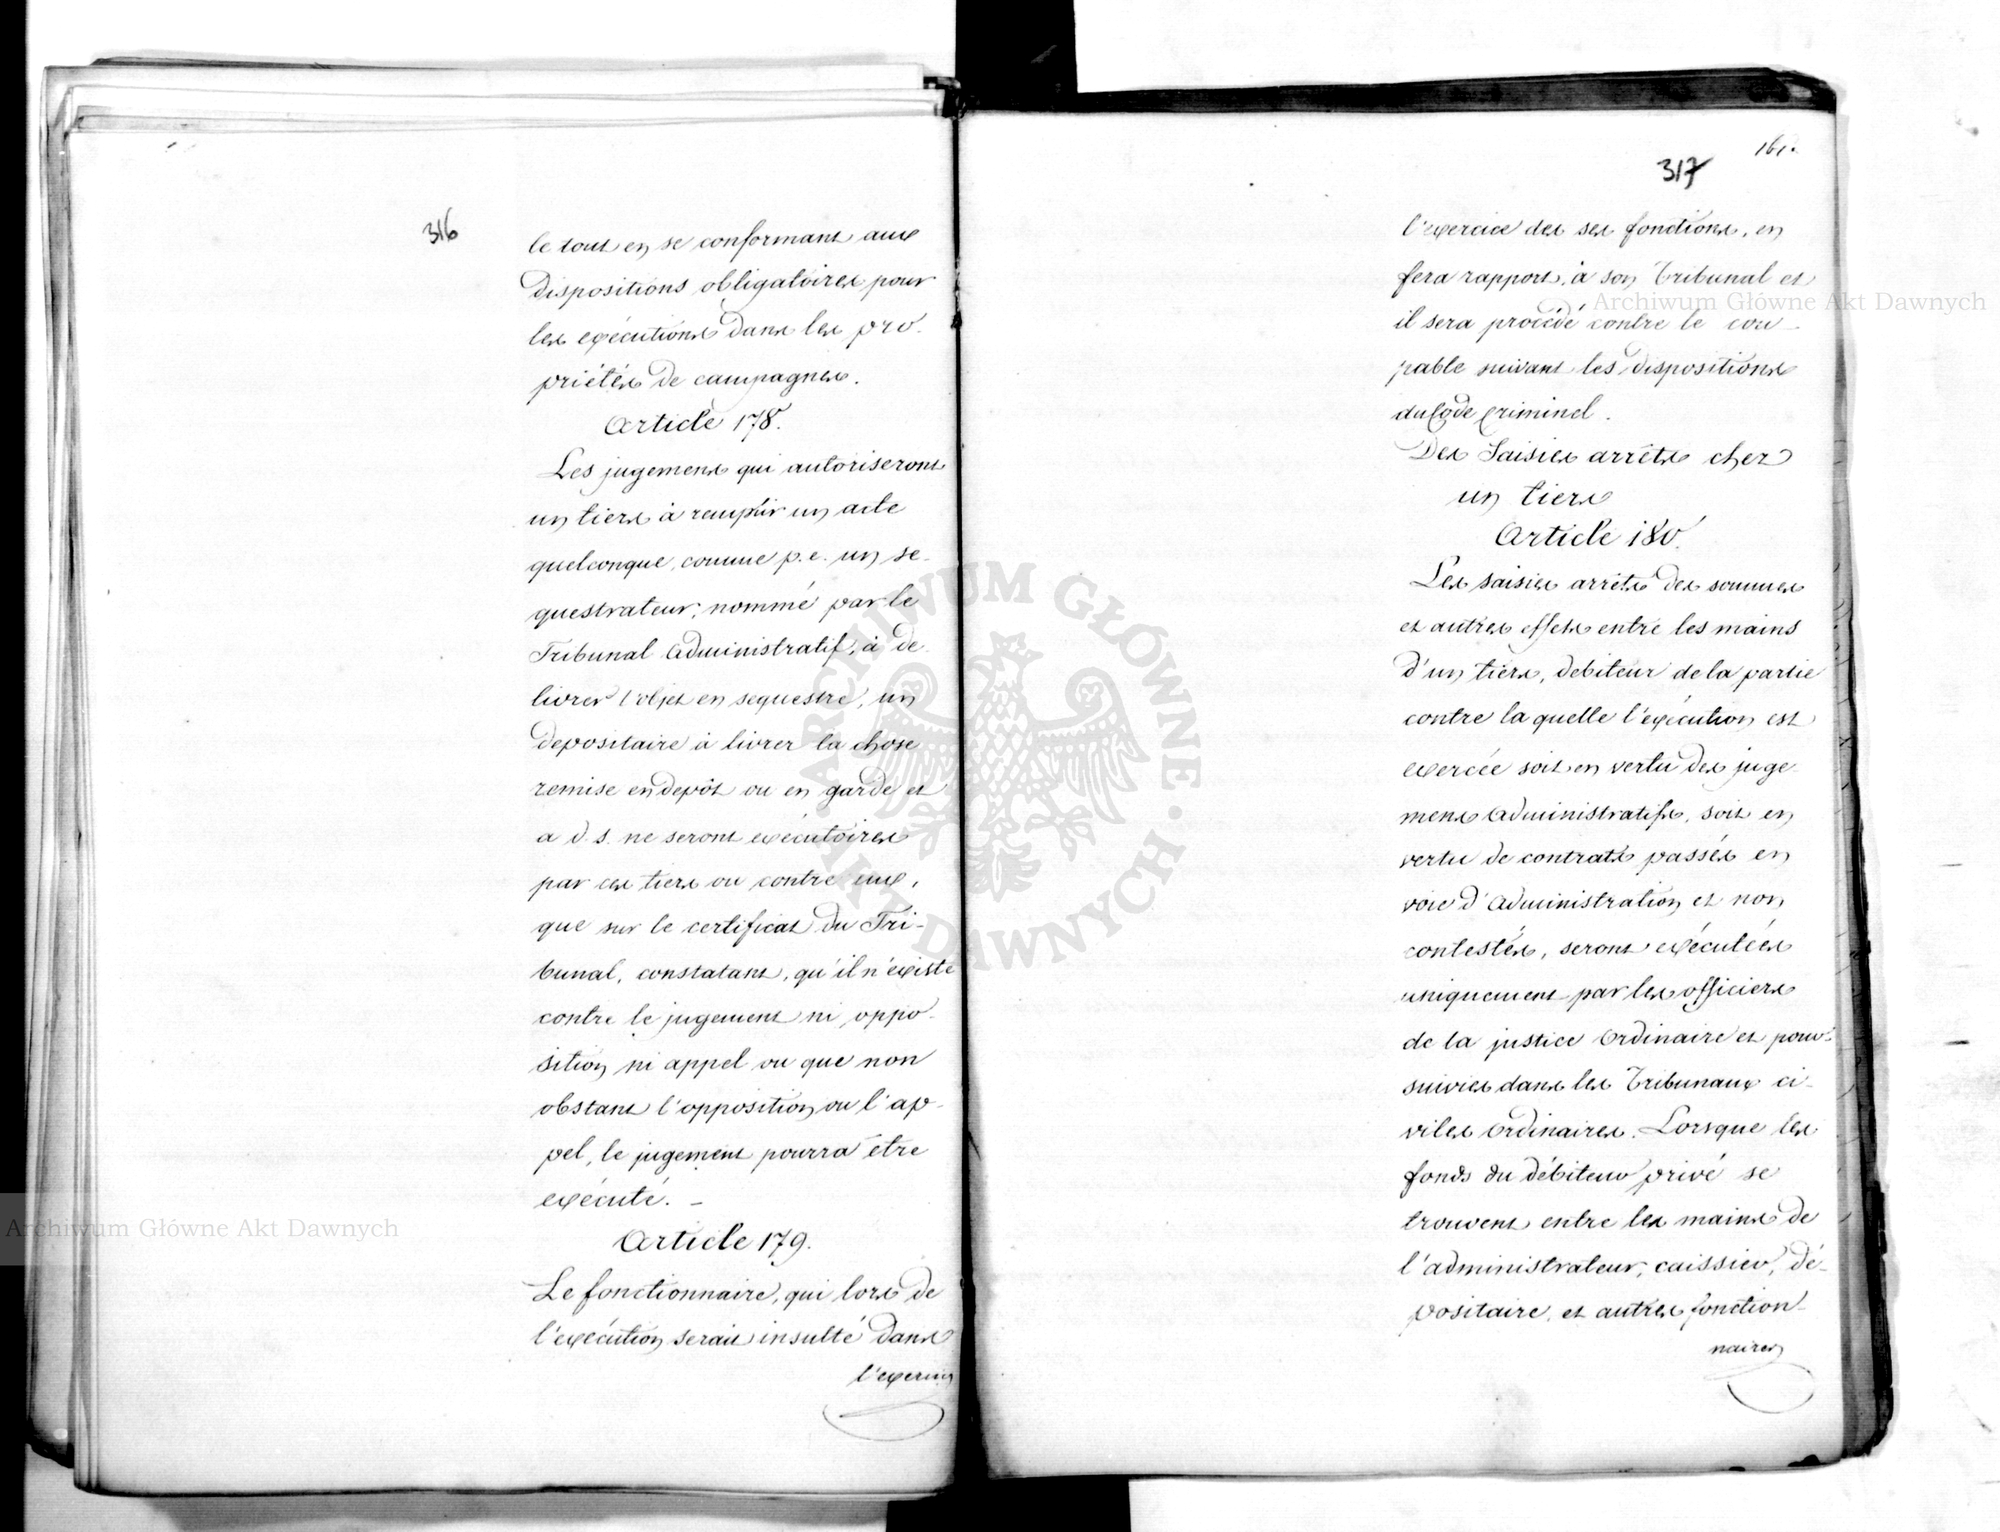 316
le tout en se conformant aux
dispositions obligatoires pour
les exécutions dans les pro-
priétés de campagnes.
Article 178.
Les jugemens qui autoriseront
un tiers à remplir un acte
quelconque, comme p. e. un se-
questrateur, nommé par le
Tribunal Administratif, à de-
livrer l'objet en sequestre, un
depositaire à livrer la chose
remise en depôt ou en garde et
a. d. s. ne seront exécutoires
par ces tiers ou contre eux,
que sur le certificat du Tri-
bunal, constatant, qu'il n'existe
contre le jugement ni oppo-
sition ni appel ou que non
obstant l'opposition ou l'ap-
pel, le jugement pourra être
exécuté. –
Article 179.
Le fonctionnaire, qui lors de
l'exécution serait insulté dans
l'exercice
161.
317
l'exercice des ses fonctions, en
fera rapport, à son Tribunal et
il sera procédé contre le cou-
pable suivant les dispositions
du Code Criminel.
Des Saisies arrêts chez
un tiers
Article 180.
Les saisies arrêts des sommes
et autres effets entre les mains
d'un tiers, debiteur de la partie
contre la quelle l'exécution est
exercée soit en vertu des juge-
mens Administratifs, soit en
vertu de contrats passés en
voie d'Administration et non
contestés, seront exécutées
uniquement par les officiers
de la justice Ordinaire et pour-
suivies dans les Tribunaux ci-
viles Ordinaires. Lorsque les
fonds du débiteur privé se
trouvent entre les mains de
l'administrateur, caissier, dé-
positaire, et autres fonction-
naires
Archiwum Główne Akt Dawnych
Archiwum Główne Akt Dawnych
ARCHIWUM GŁÓWNE · AKT DAWNYCH ·